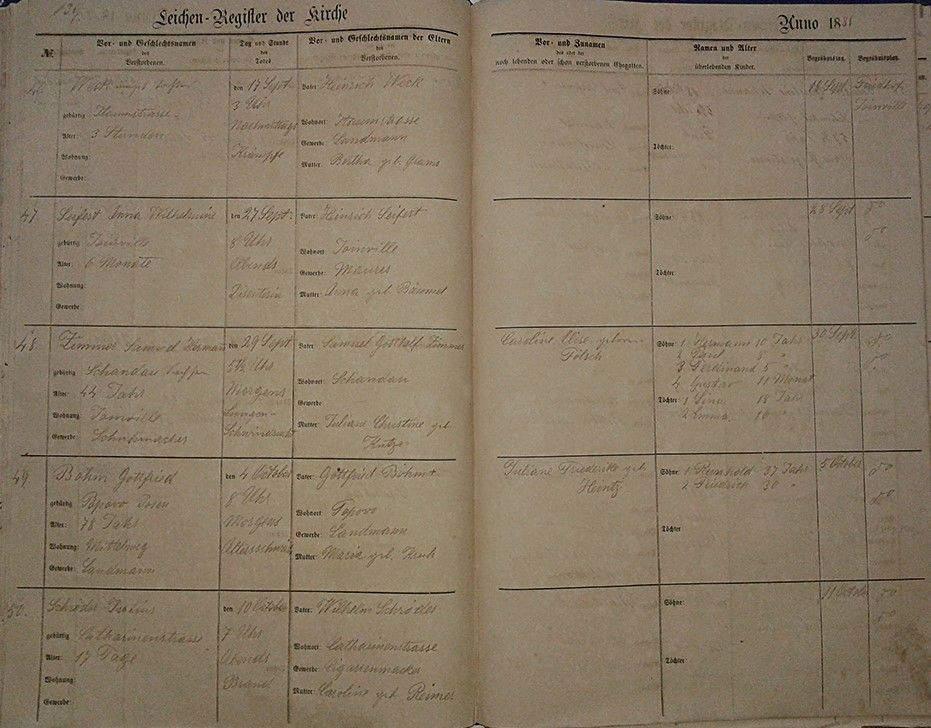 Leichen-Register der Kirche
Anno 1881
№
Vor- und Geschlechtsnamen
des
Verstorbenen.
Tag und Stunde
des
Todes
Vor- und Geschlechtsnamen der Eltern
des
Verstorbenen.
Vor- und Zunamen
des oder der
noch lebenden oder schon verstorbenen Ehegatten.
Namen und Alter
der
überlebenden Kinder.
Begräbnißtag.
Begräbnißplatz.
Weck
den 17 Sept
Vater: Heinrich Weck
Söhne:
18 Sept.
Friedhof
gebürtig
3 Uhr
Joinville
Alter: 3 Stunden
Nachmittags
Wohnort
Gewerbe: Landmann
Wohnung:
Krämpfe
Mutter: Bertha geb.
Töchter:
Gewerbe:
47
Seifert Anna Wilhelmine
den 27 Sept.
Vater: Heinrich Seifert
Söhne:
28 Sept
do
gebürtig Joinville
8 Uhr
Wohnort Joinville
do
Alter: 6 Monate
Abends
Gewerbe: Maurer
Wohnung:
Disenterie
Mutter: Anna geb.
Töchter:
Gewerbe:
48
Zimmer Samuel Herman
den 29 Sept
Vater: Samuel Gotthilf Zimmer
Caroline Elise geboren
Söhne 1 Hermann 10 Jahr
30 Sept.
do
gebürtig Schandau Sachsen
5½ Uhr
Wohnort: Schandau
2 Paul 8 "
do
Alter: 44 Jahr
Morgens
Gewerbe
3 Ferdinand 5 "
4 Gustav 11 Monat
Wohnung: Joinville
Lungen-
Mutter: Juliane Christine geb.
Töchter 1 Lina 18 Jahr
Gewerbe: Schuhmacher
Schwindsucht
2 Emma 16 "
49
Böhm Gottfried
den 4 October
Vater: Gottfried Böhm
Juliane Friederike geb.
Söhne: 1 Reinhold 37 Jahr
5 October
do
gebürtig Popovo Posen
8 Uhr
Wohnort Popovo
Hentz
2 Friedrich 30 "
do
Alter: 78 Jahr
Morgens
Gewerbe: Landmann
Wohnung: Mittelweg
Altersschwäche
Mutter: Maria geb.
Töchter
Gewerbe: Landmann
50.
Schröder
den 10 October
Vater: Wilhelm Schröder
Söhne:
11 October
do
gebürtig Catharinenstrasse
7 Uhr
Wohnort: Catharinenstrasse
do
Alter: 17 Tage
Abends
Gewerbe: Cigarrenmacher
Töchter
Wohnung:
Brand
Mutter: Caroline geb. Reimer
Gewerbe: